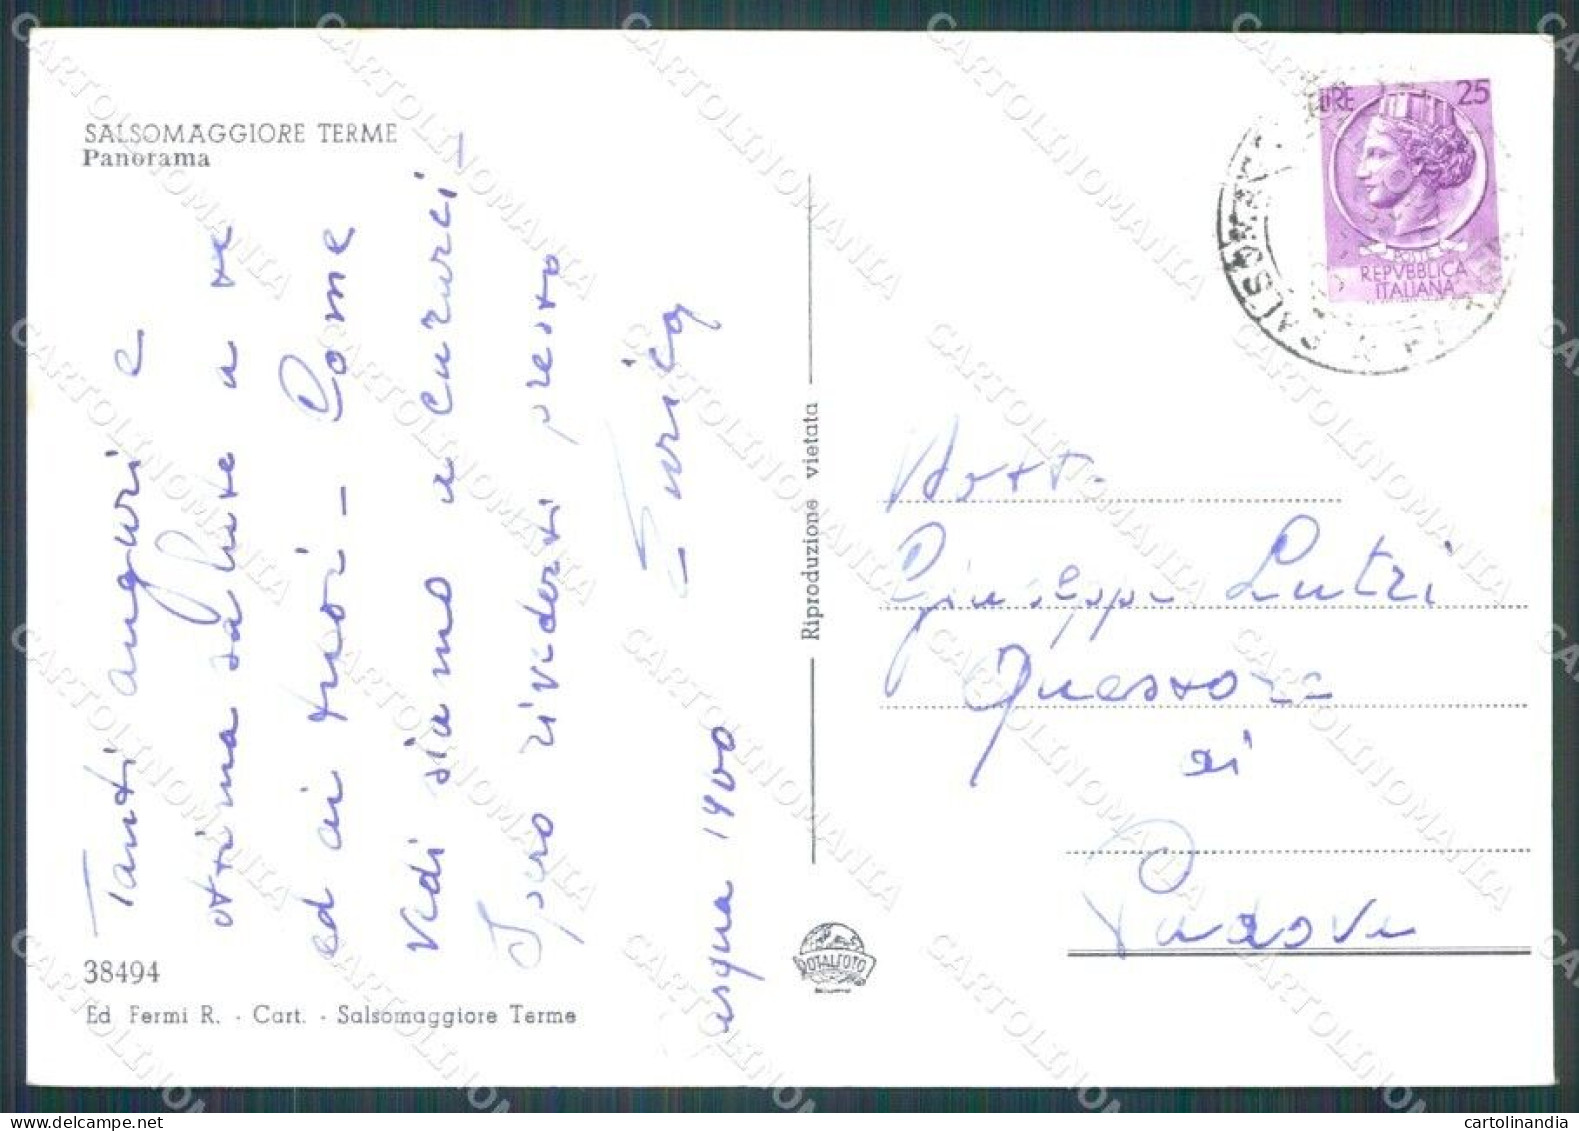 SALSOMAGGIORE TERME
Panorama
Tanti auguri e
ottima salute a te
ed ai tuoi - Come
vedi siamo a curarci -
Spero rivederti presto
Enrico
38494
Ed Fermi R. - Cart. - Salsomaggiore Terme
Riproduzione vietata
LIRE 25
POSTE
REPVBBLICA
ITALIANA
Dott.
Giuseppe Lutri
Questore
di
Padova
cartolinandia